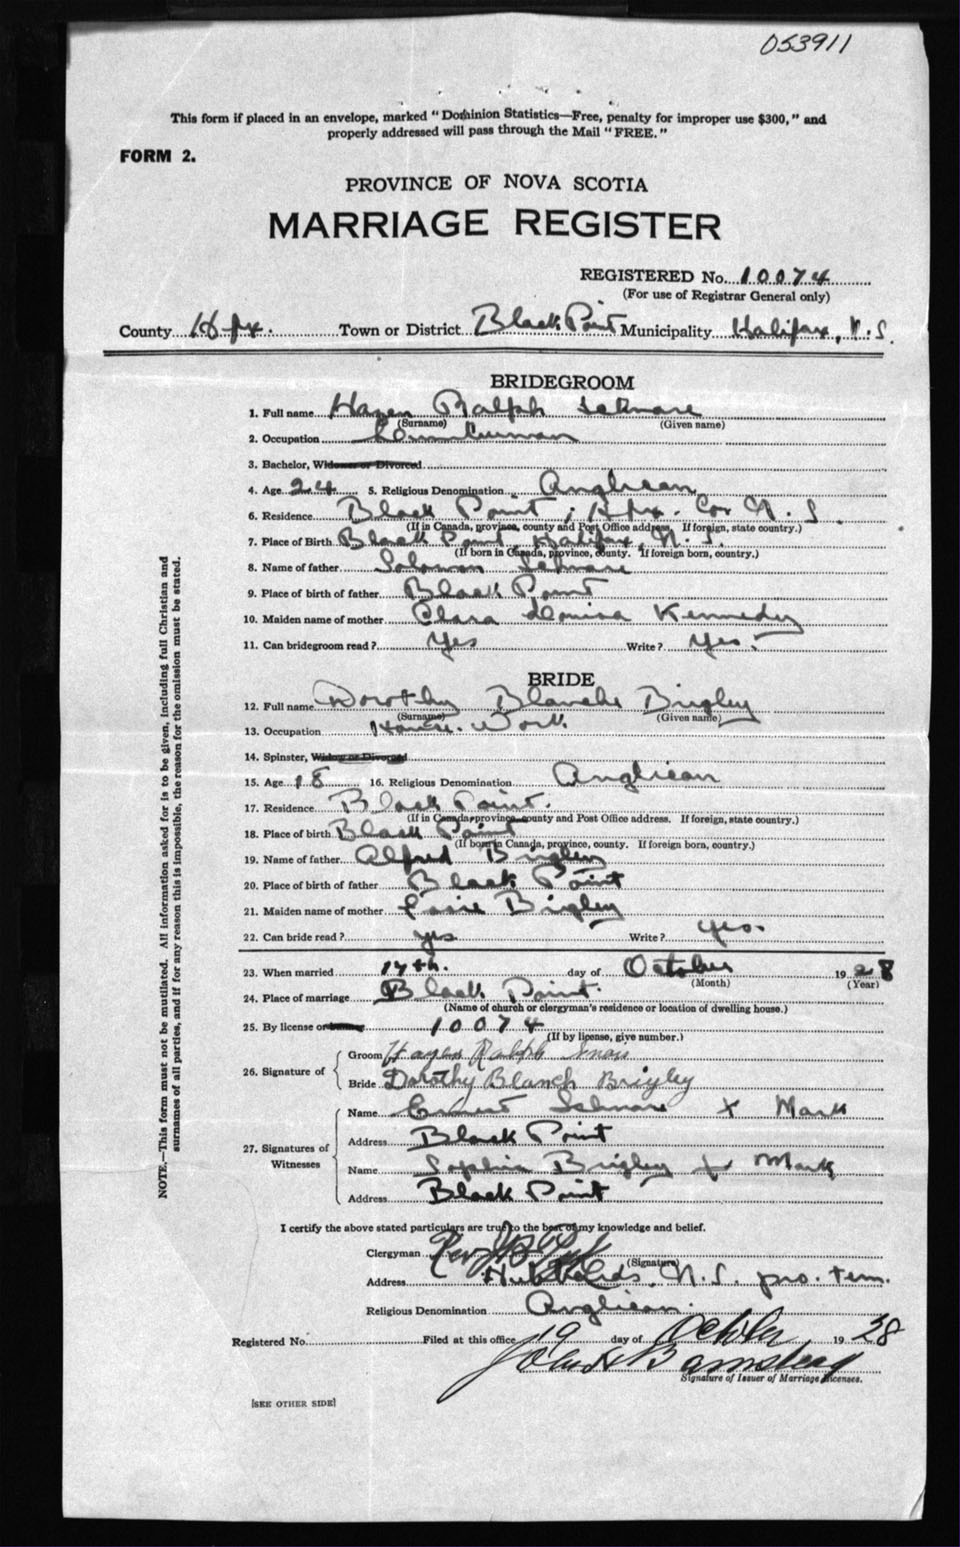 053911
This form if placed in an envelope, marked "Dominion Statistics—Free, penalty for improper use $300," and
properly addressed will pass through the Mail "FREE."
FORM 2.
PROVINCE OF NOVA SCOTIA
MARRIAGE REGISTER
REGISTERED No. 10074
(For use of Registrar General only)
County Hfx. Town or District Black Point Municipality Halifax, N.S.
BRIDEGROOM
1. Full name Hazen Ralph Selnare
(Surname) (Given name)
2. Occupation
3. Bachelor, Widower or Divorced
4. Age 24 5. Religious Denomination Anglican
6. Residence Black Point, Hfx. Co N.S.
(If in Canada, province, county and Post Office address. If foreign, state country.)
7. Place of Birth Black Point, Halifax, N.S.
(If born in Canada, province, county. If foreign born, country.)
8. Name of father Solomon Selnare
9. Place of birth of father Black Point
10. Maiden name of mother Clara Louisa Kennedy
11. Can bridegroom read? Yes Write? Yes.
BRIDE
12. Full name Dorothy Blanche Brigley
(Surname) (Given name)
13. Occupation House. Work.
14. Spinster, Widow or Divorced
15. Age 18 16. Religious Denomination Anglican
17. Residence Black Point.
(If in Canada, province, county and Post Office address. If foreign, state country.)
18. Place of birth Black Point
(If born in Canada, province, county. If foreign born, country.)
19. Name of father Alfred Brigley
20. Place of birth of father Black Point
21. Maiden name of mother Brigley
22. Can bride read? yes Write? yes.
23. When married 17th. day of October 1928
(Month) (Year)
24. Place of marriage Black Point.
(Name of church or clergyman's residence or location of dwelling house.)
25. By license or 10074
(If by license, give number.)
26. Signature of
Groom Hazen Ralph
Bride Dorothy Blanch Brigley
27. Signatures of Witnesses
Name Ernest Selnare X Mark
Address Black Point
Name Sophia Brigley X Mark
Address Black Point
I certify the above stated particulars are true to the best of my knowledge and belief.
Clergyman Rev
(Signature)
Address Hubbards, N.S. pro. tem.
Religious Denomination Anglican.
Registered No. Filed at this office 19 day of October 1928
Signature of Issuer of Marriage Licenses.
[SEE OTHER SIDE]
NOTE.—This form must not be mutilated. All information asked for is to be given, including full Christian and
surnames of all parties, and if for any reason this is impossible, the reason for the omission must be stated.